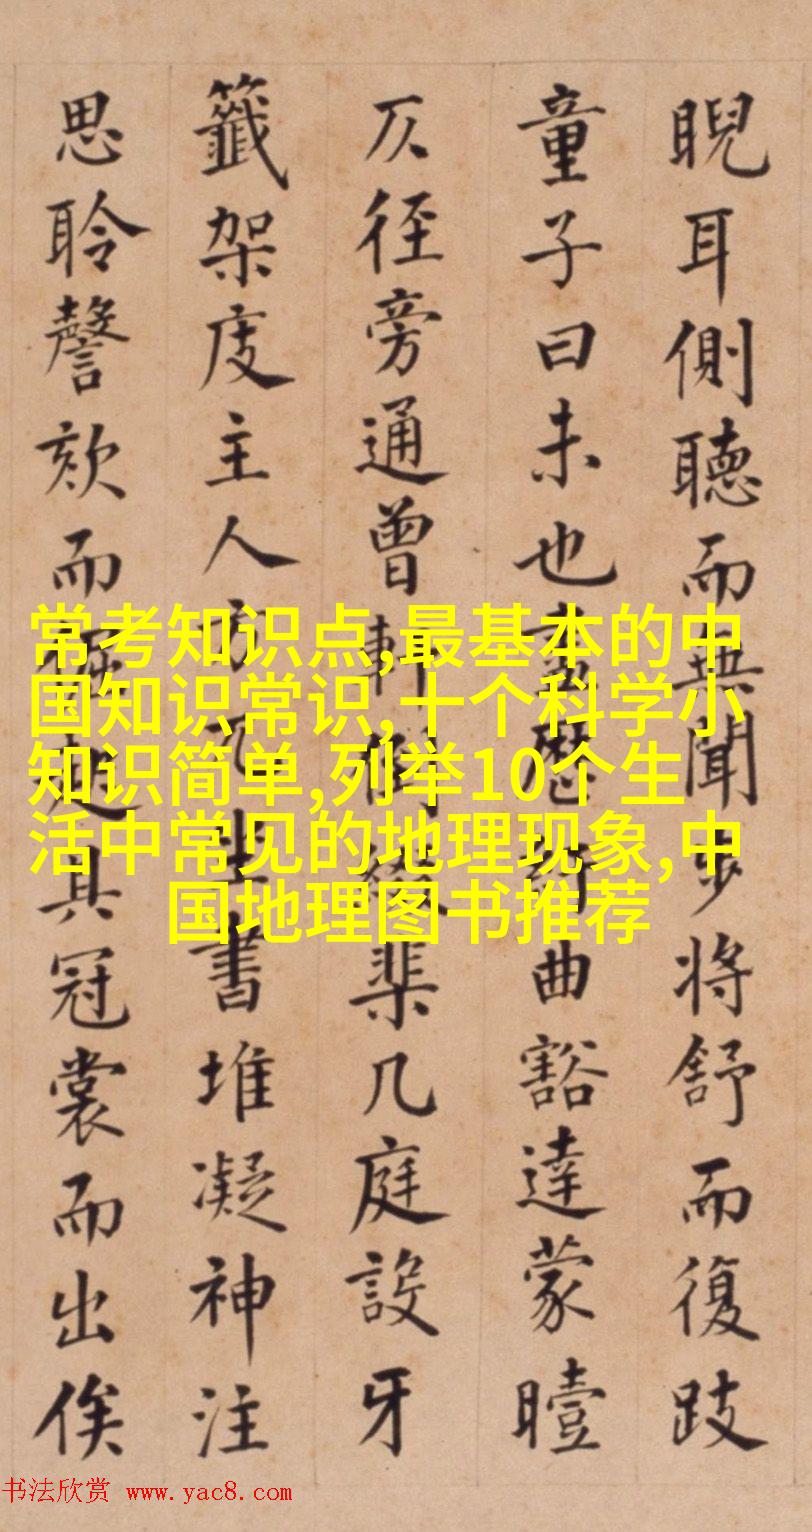 睨耳側聽而無聞步將舒而復跂
童子曰未也歷曲豁達蒙曀
仄徑旁通曾軒棐几庭設牙
籤架庋主人方坐書堆凝神注
思聆謦欬而起具冠裳而出俟
常考知识点,最基本的中
国知识常识,十个科学小
知识简单,列举10个生
活中常见的地理现象,中
国地理图书推荐
书法欣赏 www.yac8.com